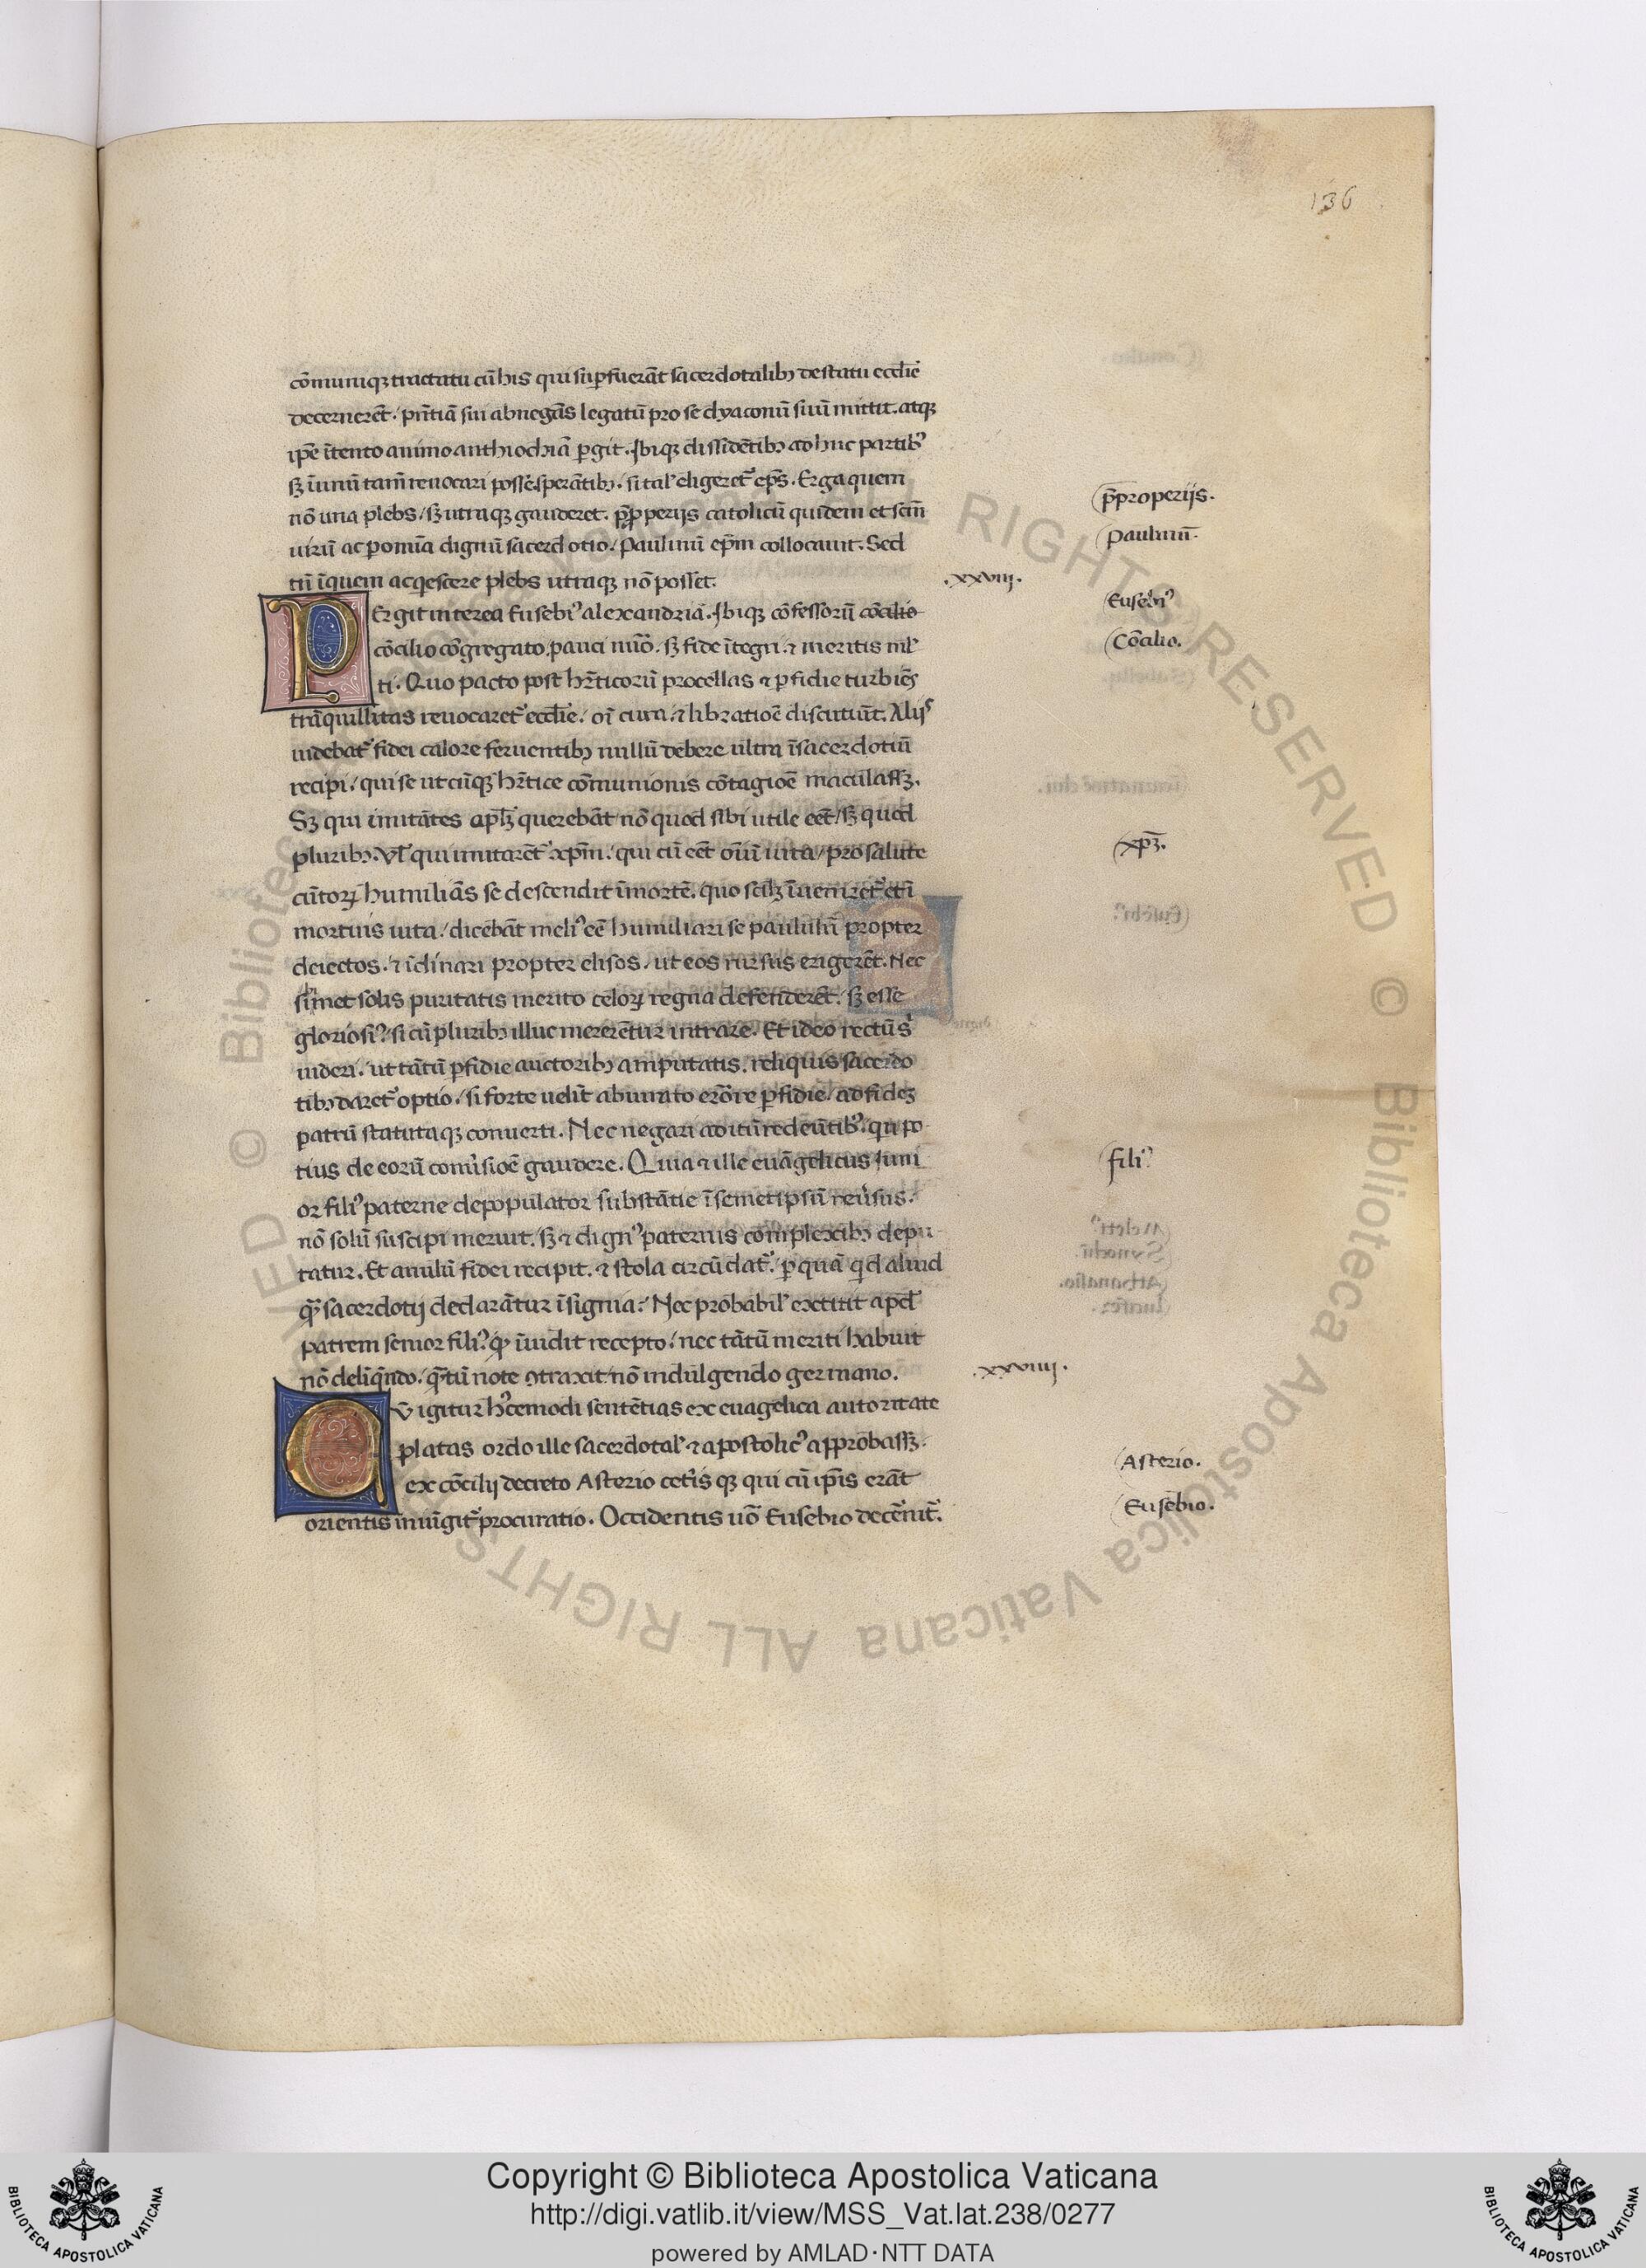 136
cōmuniqꝫ tractatu cū his qui suꝑfuerāt sacerdotalibꝫ de statu eccl̄ie
decerneret̄. pn̄tiā sui abnegās legatū pro se dyaconū suū mittit. atqꝫ
ip̄e ītento animo anthiochiā ꝑgit. Ibiqꝫ dissidētibꝫ adhuc partibꝰ
sꝫ ī unū tam̄ reuocari posse sperātibꝫ. si tal̓ eligeret̄ ep̄s. Erga quem
nō una plebs / sꝫ utraqꝫ gauderet. p̄properijs catolicū quidem et scīm
uirū ac ꝑ omīa dignū sacerdotio / Paulinū ep̄m collocauit. Sed
tn̄ ī quem acqescere plebs utraqꝫ nō posset.
.xxviij.
PErgit interea Eusebiꝰ alexandriā. Ibiqꝫ cōfessorū cōcilio
cōcilio cōgregato. pauci nūo. sꝫ fide ītegri. ⁊ meritis ml̓
ti. Quo pacto post hr̄ticorū procellas ⁊ ꝑfidie turbiēs
trāquillitas reuocaret̄ eccl̄ie. oī cura. ⁊ libratioē discutiūt. Alijs
uidebat̄ fidei calore feruentibꝫ nullū debere ultra ī sacerdotiū
recipi / qui se utcūqꝫ hr̄tice cōmunionis cōtagioē maculassꝫ.
Sꝫ qui imitātes apl̄ꝫ querebāt nō quod sibi utile eēt / sꝫ quod
pluribꝫ. Vl̓ qui imitarēt̄ xp̄m / qui cū eēt oīū uita / pro salute
cūtorꝝ humiliās se descendit ī mortē. quo sciłꝫ īueniret̄ et ī
mortuis uita / dicebāt meliꝰ eē humiliari se paululū propter
deiectos. ⁊ īclinari propter elisos. ut eos rursus erigerēt. Nec
sīmet solis puritatis merito celorꝝ regna defenderēt. sꝫ esse
gloriosiꝰ / si cū pluribꝫ illuc mererētur intrare. Et ideo rectūs̓
uideri / ut tātū ꝑfidie auctoribꝫ amputatis. reliquis sacerdo
tibꝫ daret̄ optio / si forte uelīt abiurato erōre ꝑfidie / ad fideꝫ
patrū statutaqꝫ conuerti. Nec negari aditū redeūtibꝰ. qn̄ po-
tius de eorū conūsioē gaudere. Quia ⁊ ille euāgelicus iuni
or filiꝰ paterne depopulator substātie ī semetipsū reūsus.
nō solū suscipi meruit. sꝫ ⁊ dignꝰ paternis complexibꝫ depu-
tatur. Et anulū fidei recipit. ⁊ stola circūdat̄. ꝑ quā qd̓ aliud
qꝫ sacerdotij declarātur īsignia? Nec probabil̓ extitit apd̓
patrem senior filiꝰ. qꝫ īuidit recepto / nec tātū meriti habuit
nō delīq̄ndo. q̄tū note ꝯtraxit nō indulgendo germano.
.xxviiij.
Cū igitur hꝰcemodi sentētias ex euagelica autoritate
ꝓlatas ordo ille sacerdotal̓ ⁊ apostolicꝰ approbassꝫ.
ex cōcilij decreto Asterio cet̓is qꝫ qui cū ip̄is erāt
orientis iniūgit̄ procuratio. Occidentis uō Eusebio decēnit̄.
p̄properijs.
Paulinū.
Eusebiꝰ
Cōcilio.
xp̄ꝫ.
filiꝰ
Asterio.
Eusebio.
Copyright © Biblioteca Apostolica Vaticana
http://digi.vatlib.it/view/MSS_Vat.lat.238/0277
powered by AMLAD·NTT DATA
BIBLIOTECA APOSTOLICA VATICANA
BIBLIOTECA APOSTOLICA VATICANA
© Biblioteca Apostolica Vaticana ALL RIGHTS RESERVED © Biblioteca Apostolica Vaticana ALL RIGHTS RESERVED